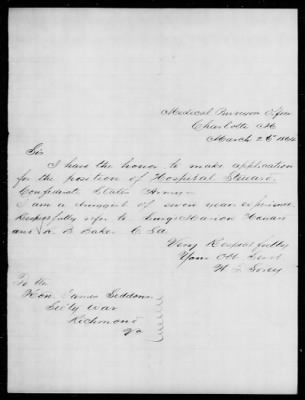 Medical Purveyors Office
Charlotte NC
March 2d 1864
Sir
I have the honor to make application
for the position of Hospital Steward
Confederate States Army
I am a druggist of seven years experience
Respectfully refer to Surg Marion Howard
and A B Baker C Sa
Very Respectfully
Your Obt Servt
To the
Hon James Seddon
Secty War
Richmond
Va